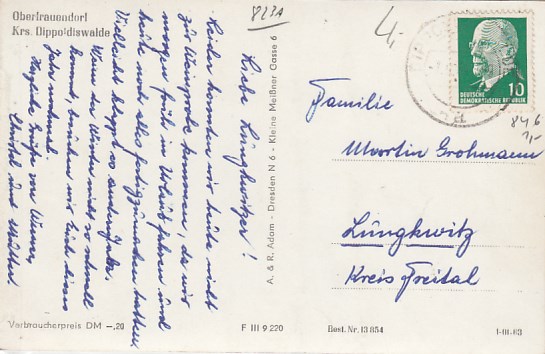 Oberfrauendorf
Krs. Dippoldiswalde
823A
4,-
Liebe Lungkwitzer!
Leider konnten wir heute nicht
zur Weinprobe kommen, da wir
morgen früh in Urlaub fahren und
heute noch alles fertigzumachen hatten.
Vielleicht klappt es anderes Jahr.
Wenn der Winter nicht so schnell
kommt, besuchen wir Euch dieses
Jahr nochmal.
Herzliche Grüße von
Christel und Mutter
Verbraucherpreis DM –,20
F III 9 220
A. & R. Adam - Dresden N 6 - Kleine Meißner Gasse 6
10
DEUTSCHE
DEMOKRATISCHE REPUBLIK
846
1,-
Familie
Martin Grohmann
Lungkwitz
Kreis Freital
Best. Nr. 13 854
1-01.63